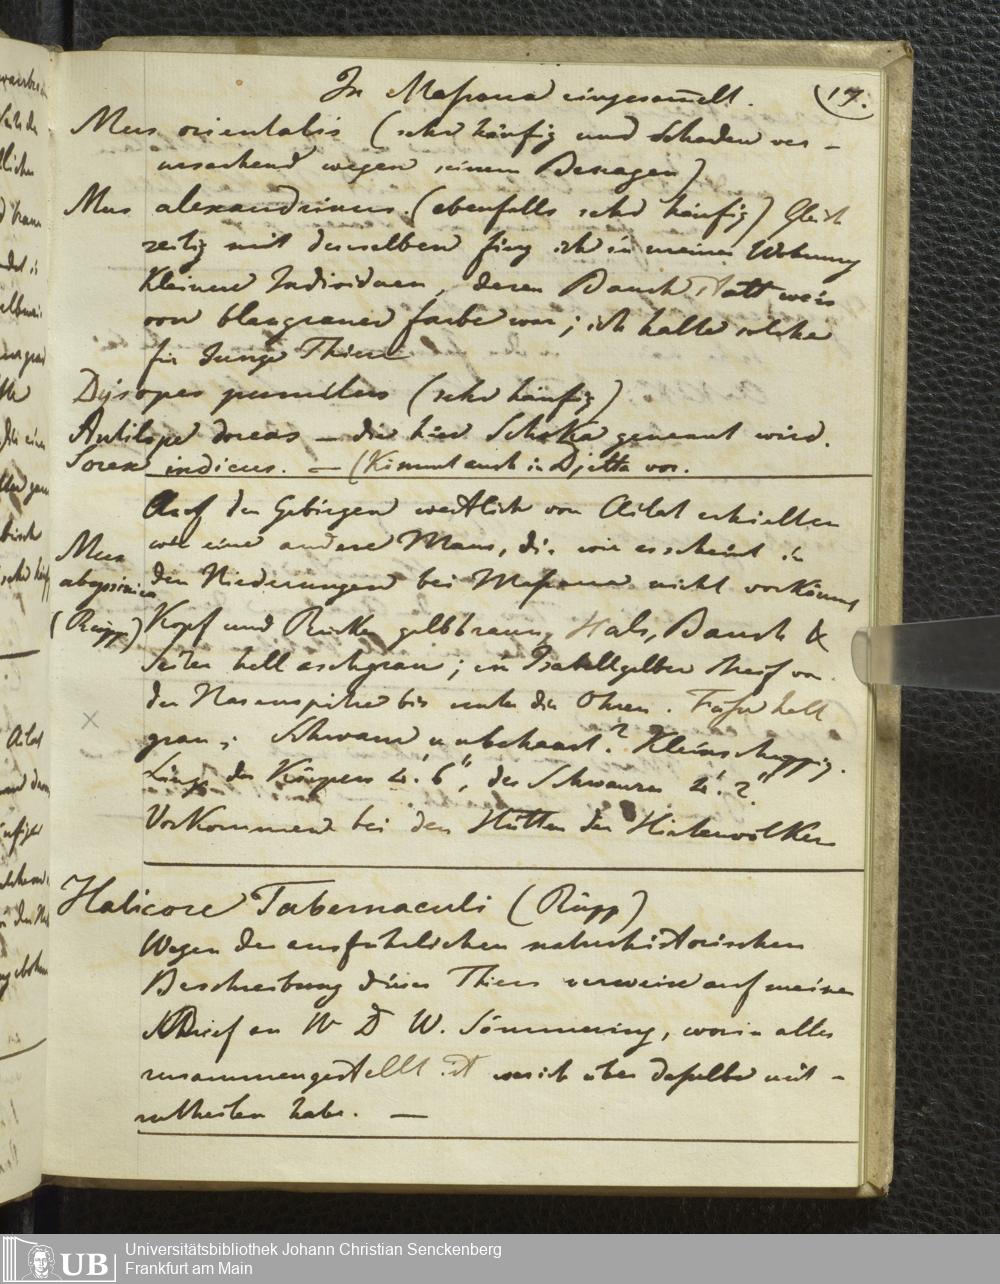 17.
In Massaua eingesam̅elt.
Mus orientalis (sehr häufig und Schaden ver-
ursachend wegen seinem Benagen)
Mus alexandrinus (ebenfalls sehr häufig) Gleich
zeitig mit derselben fing ich in meiner Wohnung
kleinere Individuen, deren Bauch statt weis
von blaugrauer farbe war; ich halte solche
für Junge Thiere
Dysopes pumilus (sehr häufig)
Antilope dorcas – die hier Schoka genannt wird.
Sorex indicus. — (Kimmt auch in Djetta vor.
Auf den Gebirgen westlich von Ailat erhielten
wir eine andere Maus, die wie es scheint in
den Niederungen bei Massaua nicht vorkömmt
Mus
abyssinica
(Rüpp)
Kopf und Rücken gelbbraun, Hals, Bauch &
Seiten hell aschgrau; ein Isabellgelber Streif von
der Nasenspitze bis unter die Ohren. Füsse hell
grau; Schwanz unbehaart? Kleinschuppig.
Länge des Körpers 4". 6"', des Schwanzes 4". 2"'
Vorkommend bei den Hütten der Hirtenvölker
Halicore Tabernaculi (Rüpp)
Wegen der ausführlichen naturhistorischen
Beschreibung dieses Thiers verweise auf meinen
Brief an Sömmering, worin alles
zusammengestellt ist was ich über dasselbe mit-
zutheilen habe. —
Universitätsbibliothek Johann Christian Senckenberg
Frankfurt am Main
UB